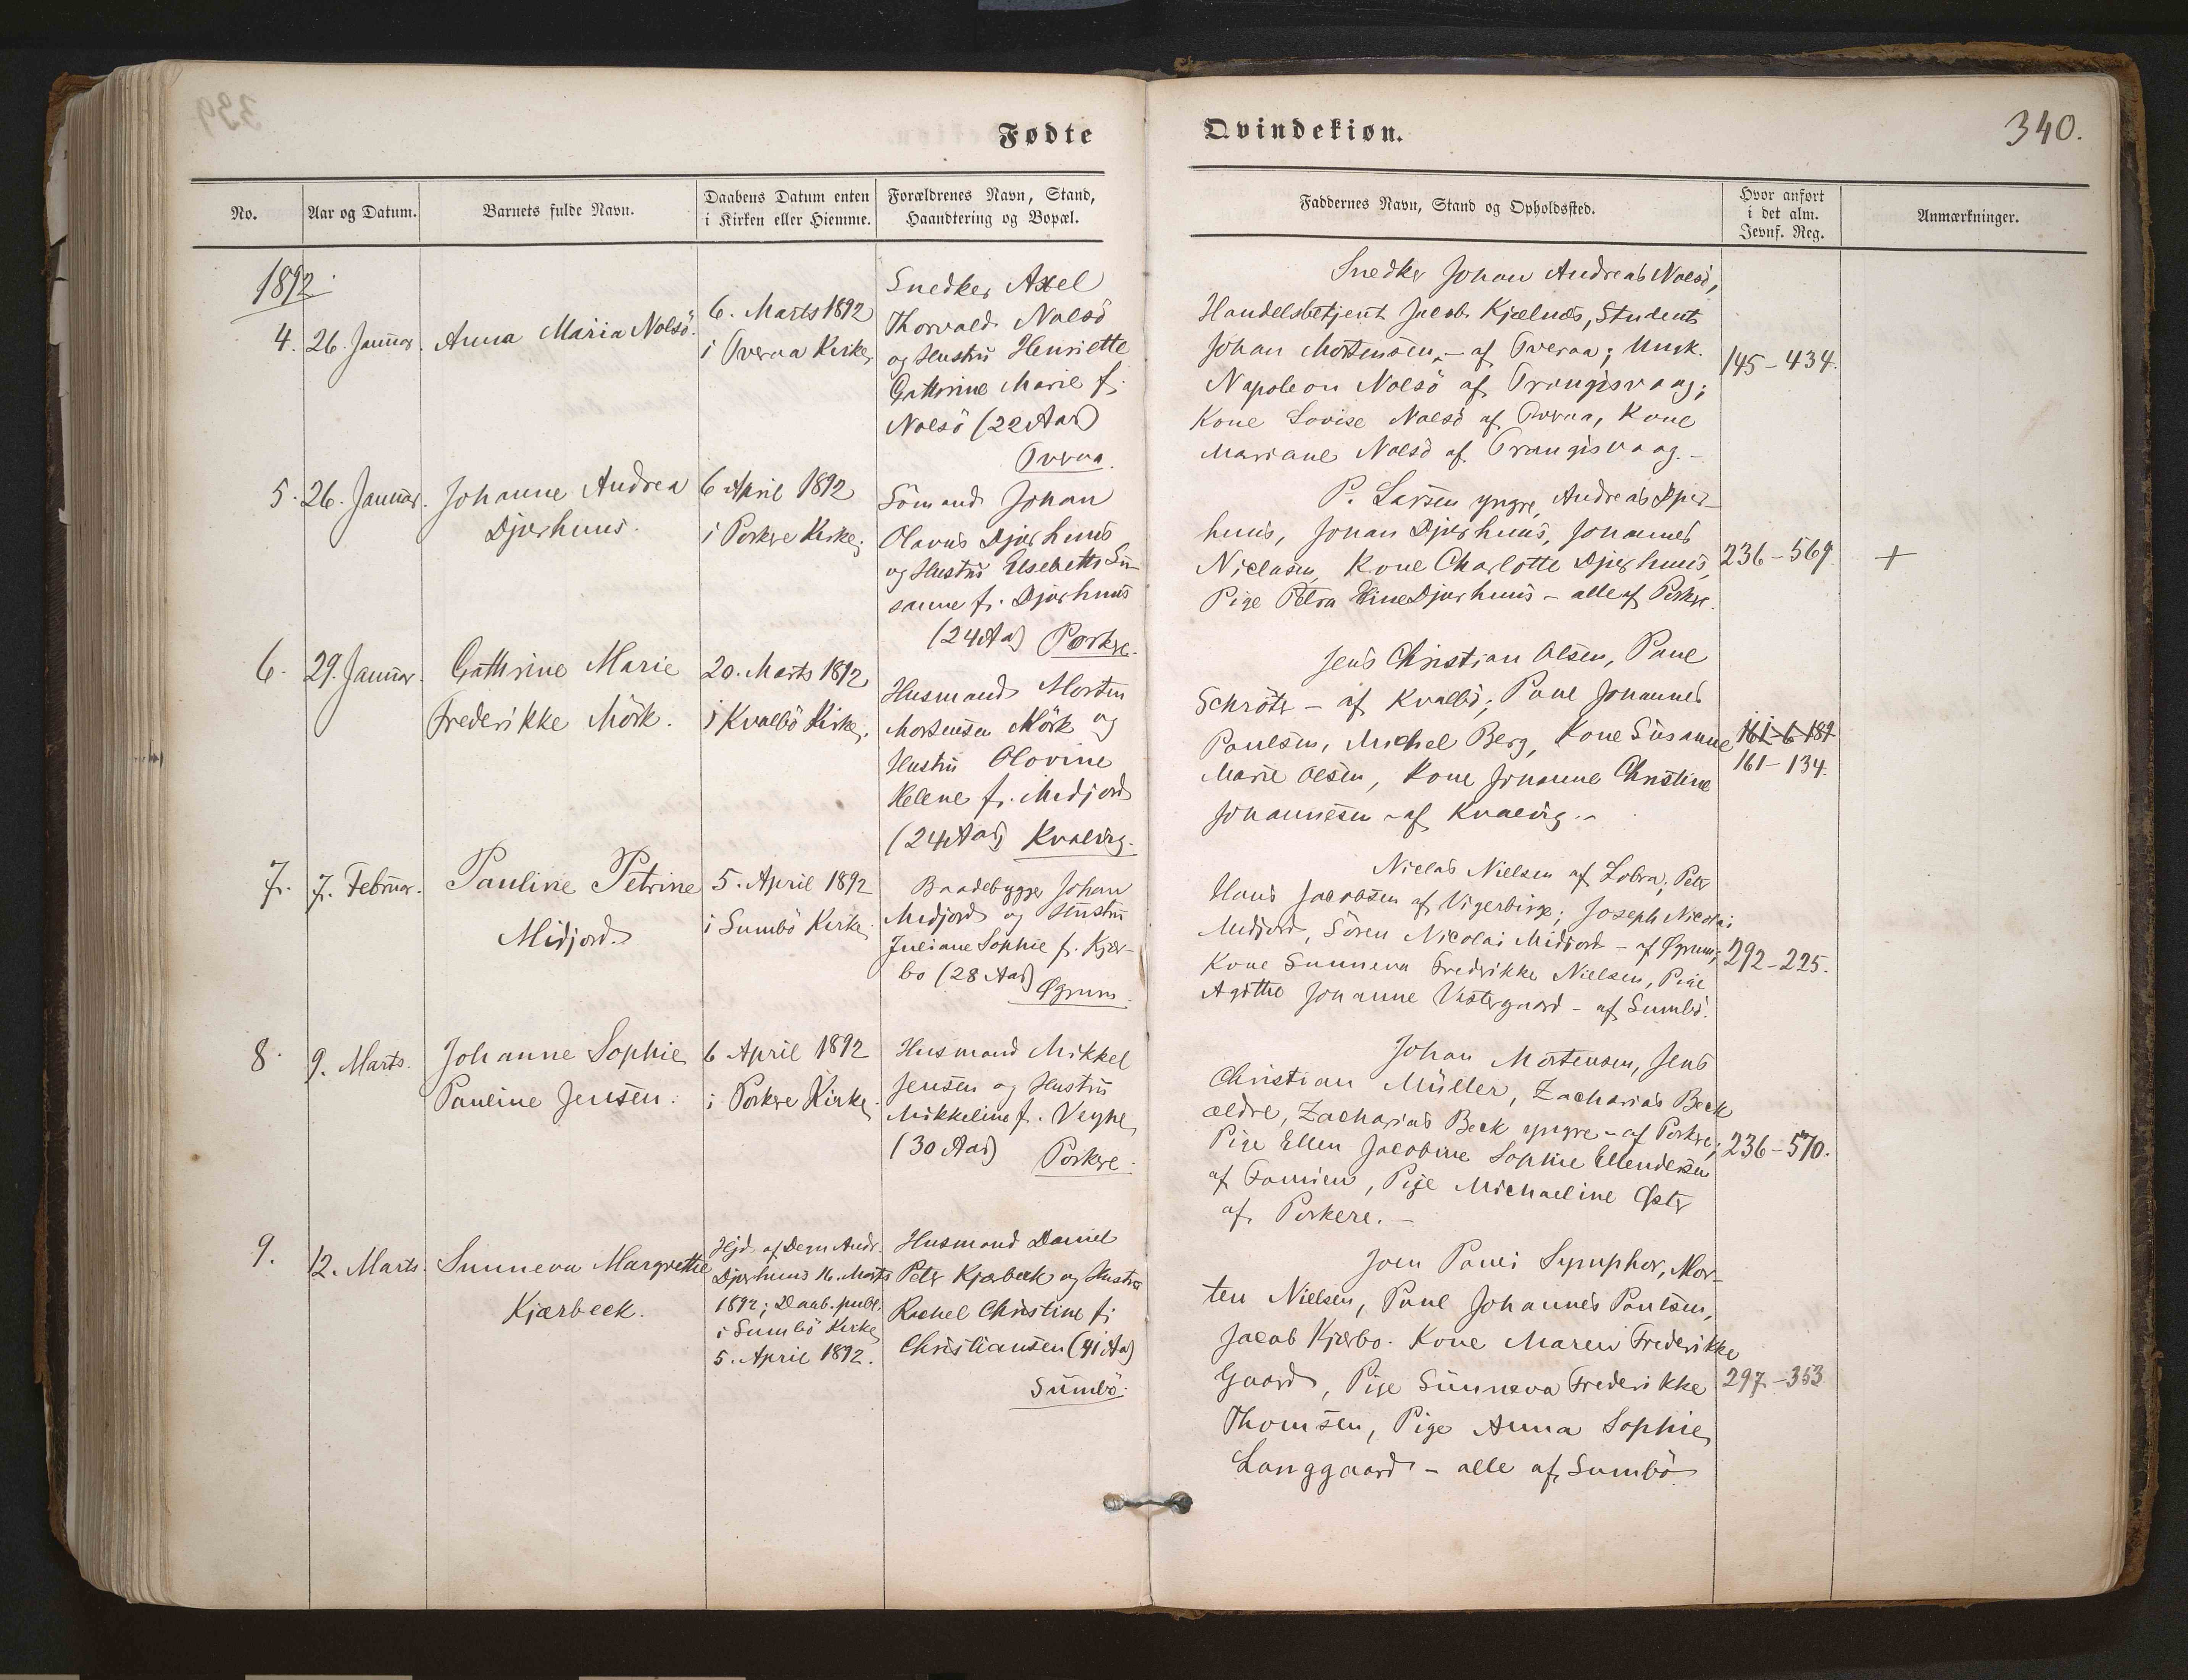 Fødte
Qvindekiøn.
340.
No.
Aar og Datum.
Barnets fulde Navn.
Daabens Datum enten
i Kirken eller Hiemme.
Forældrenes Navn, Stand,
Haandtering og Bopæl.
Faddernes Navn, Stand og Opholdssted.
Hvor anført
i det alm.
Jevnf. Reg.
Anmærkninger.
1892.
4.
26. Januar.
Anna Maria Nolsö.
6. Marts 1892
i Tveraa Kirke
Snedker Axel
Thorvald Nolsö
og Hustru Henriette
Cathrine Marie f.
Nolsö (22 Aar)
Tveraa.
Snedker Johan Andreas Nolsö,
Handelsbetjent Jacob Kjælnæs, Student
Johan Mortensen, – af Tveraa; Ungk.
Napoleon Nolsö af Trangisvaag;
Kone Lovise Nolsö af Tveraa, Kone
Mariane Nolsö af Trangisvaag. –
145 – 434.
5.
26. Januar.
Johanne Andrea
Djurhuus.
6 April 1892
i Porkere Kirke.
Sömand Johan
Olavus Djurhuus
og Hustru Elsebeth Su-
sanne f. Djurhuus
(24 Aar) Porkere.
P. Larsen yngre, Andreas Djur-
huus, Johan Djurhuus, Johannes
Niclasen, Kone Charlotte Djurhuus,
Pige Petra Eline Djurhuus – alle af Porkere.
236 – 569.
+
6.
29. Januar.
Cathrine Marie
Frederikke Mörk.
20. Marts 1892
i Kvalbö Kirke.
Husmand Morten
Mortensen Mörk og
Hustru Olovine
Helene f. Midjord
(24 Aar) Kvalvig.
Jens Christian Olsen, Poul
Schröter – af Kvalbö; Poul Johannes
Poulsen, Michel Berg, Kone Susanne
Marie Olsen, Kone Johanne Christine
Johannesen – af Kvalvig. –
161 – 134.
7.
7. Februar.
Pauline Petrine
Midjord.
5. April 1892
i Sumbö Kirke.
Baadebygger Johan
Midjord og Hustru
Juliane Sophie f. Kjær-
bo (28 Aar)
Øgrum.
Niclas Nielsen af Lobra; Peter
Hans Jacobsen af Vigerbirge; Joseph Nicolai
Midjord, Sören Nicolai Midjord – af Øgrum;
Kone Sunneva Frederikke Nielsen, Pige
Agathe Johanne Vestergaard – af Sumbö.
292 – 225.
8.
9. Marts.
Johanne Sophie
Pauline Jensen.
6 April 1892
i Porkere Kirke.
Husmand Mikkel
Jensen og Hustru
Mikkeline f. Veyhe
(30 Aar) Porkere.
Johan Mortensen, Jens
Christian Müller, Zacharias Beck
ældre, Zacharias Beck yngre – af Porkere;
Pige Ellen Jacobine Sophie Ellendersen
af Famien, Pige Michaeline Øster
af Porkere. –
236 – 570.
9.
12. Marts.
Sunneva Margrethe
Kjærbeck.
Hjd. af Degn Andr.
Djurhuus 16. Marts
1892; Daab. publ.
i Sumbö Kirke
5. April 1892.
Husmand Daniel
Peter Kjærbeck og Hustru
Rachel Christine f.
Christiansen (41 Aar)
Sumbö.
Joen Pauli Symphor, Mor-
ten Nielsen, Poul Johannes Poulsen,
Jacob Kjærbo. Kone Maren Frederikke
Gaard, Pige Sunneva Frederikke
Thomsen, Pige Anna Sophie
Langgaard – alle af Sumbö.
297 – 353